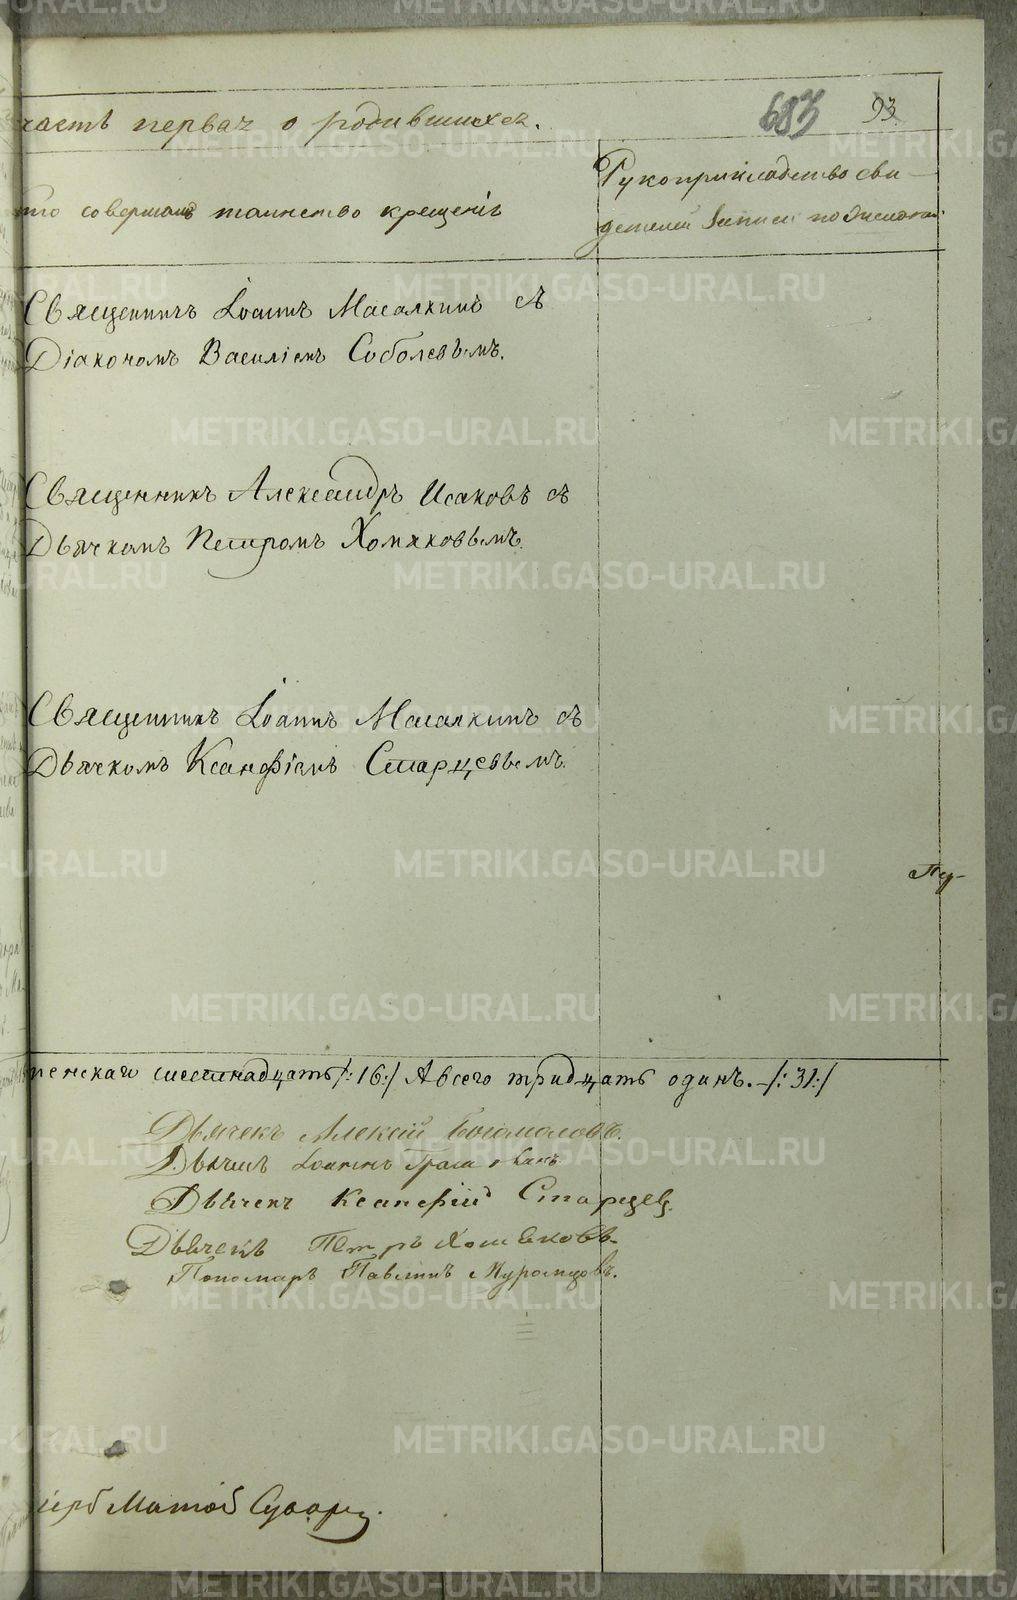 часть первая о родившихся.
683
93
то совершалъ таинство крещенія
Рукоприкладство сви-
детелей записи по желанію
Священникъ Іоаннъ Масалкинъ съ
Діакономъ Василіемъ Соболевымъ.
Священникъ Александръ Исаковъ съ
Дьячкомъ Петромъ Хомяковымъ.
Священникъ Іоаннъ Масалкинъ съ
Дьячкомъ Ксанфіемъ Старцевымъ.
Пу-
женскаго шестнадцать /:16:/ А всего тридцать одинъ. -/:31:/
Дьячекъ Алексій Богомоловъ.
Дьячекъ Іоаннъ
Дьячекъ Ксанфій Старцев.
Дьячекъ Петръ Хомяковъ
Пономарь Павлинъ Муромцовъ.
Матфій
METRIKI.GASO-URAL.RU